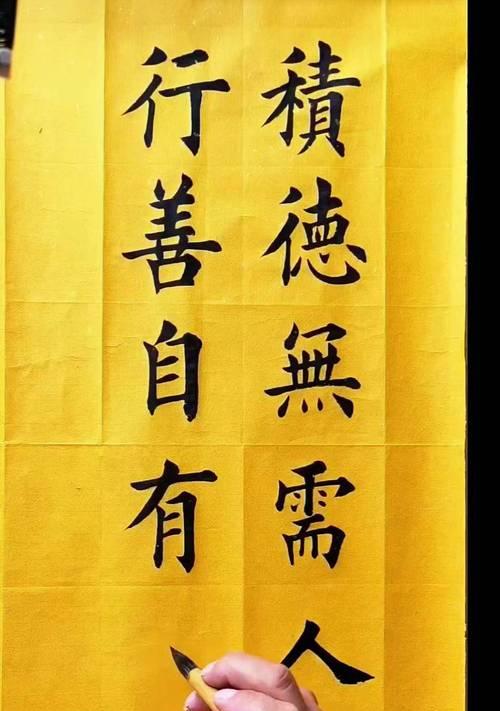 積德無需人
行善自有